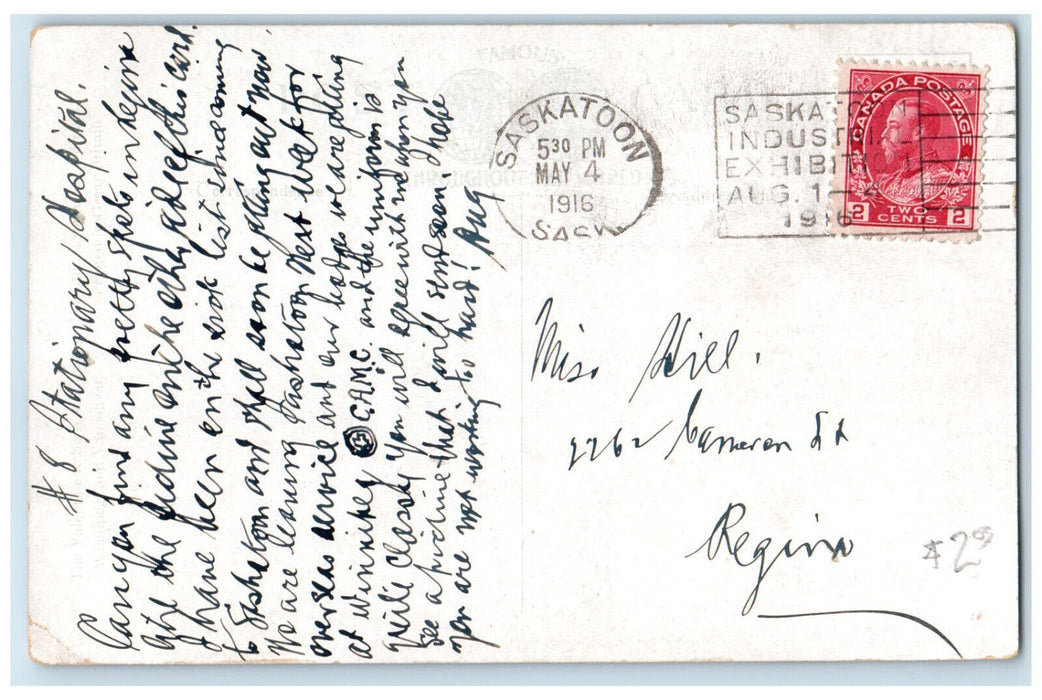 # 8 Stationary Hospital.
Can you find any pretty spots in Regina
like the on the other side of this card.
I have been on the sick list since coming
to Saskatoon and shall soon be out now
We are leaving Saskatoon next week for
overseas service and our badges we are getting
at Winnipeg C.A.M.C. and the uniform is
quite classy You will agree with me when you
see a picture that I will send soon I hope
you are not working to hard!
SASKATOON
5 30 PM
MAY 4
1916
SASK
SASKATOON
INDUSTRIAL
EXHIBITION
AUG. 1-4
1916
CANADA POSTAGE
2 TWO CENTS 2
FAMOUS
THROUGHOUT
Miss Hill.
2262 Cameron St
Regina
$2.00